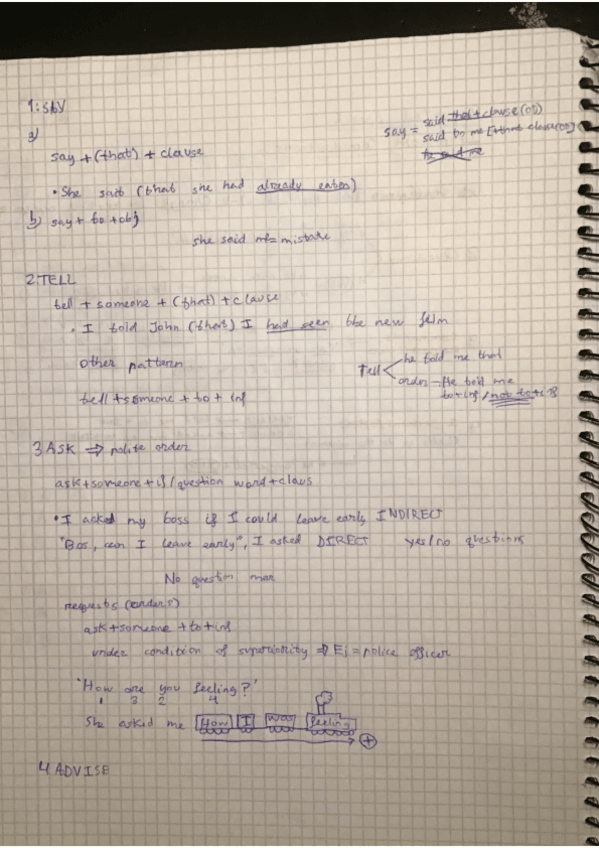 1: SAY
a)
say + (that) + clause
say = said that + clause (OS)
said to me [+that clause(OS)]
he said me
• She said (that she had already eaten)
b) say + to + obj
she said me = mistake
2. TELL
tell + someone + (that) + clause
• I told John (that) I had seen the new film
other pattern
Tell
he told me that
order → He told me
to + inf / not to + inf
tell + someone + to + inf
3. ASK ⇒ polite order
ask + someone + if / question word + claus
• I asked my boss if I could leave early INDIRECT
"Bos, can I leave early", I asked DIRECT yes/no questions
No question mar
requests (orders)
ask + someone + to + inf
under condition of superiority ⇒ Ej = police officer
'How are you feeling?'
1 3 2 4
She asked me How I was feeling
+
4 ADVISE